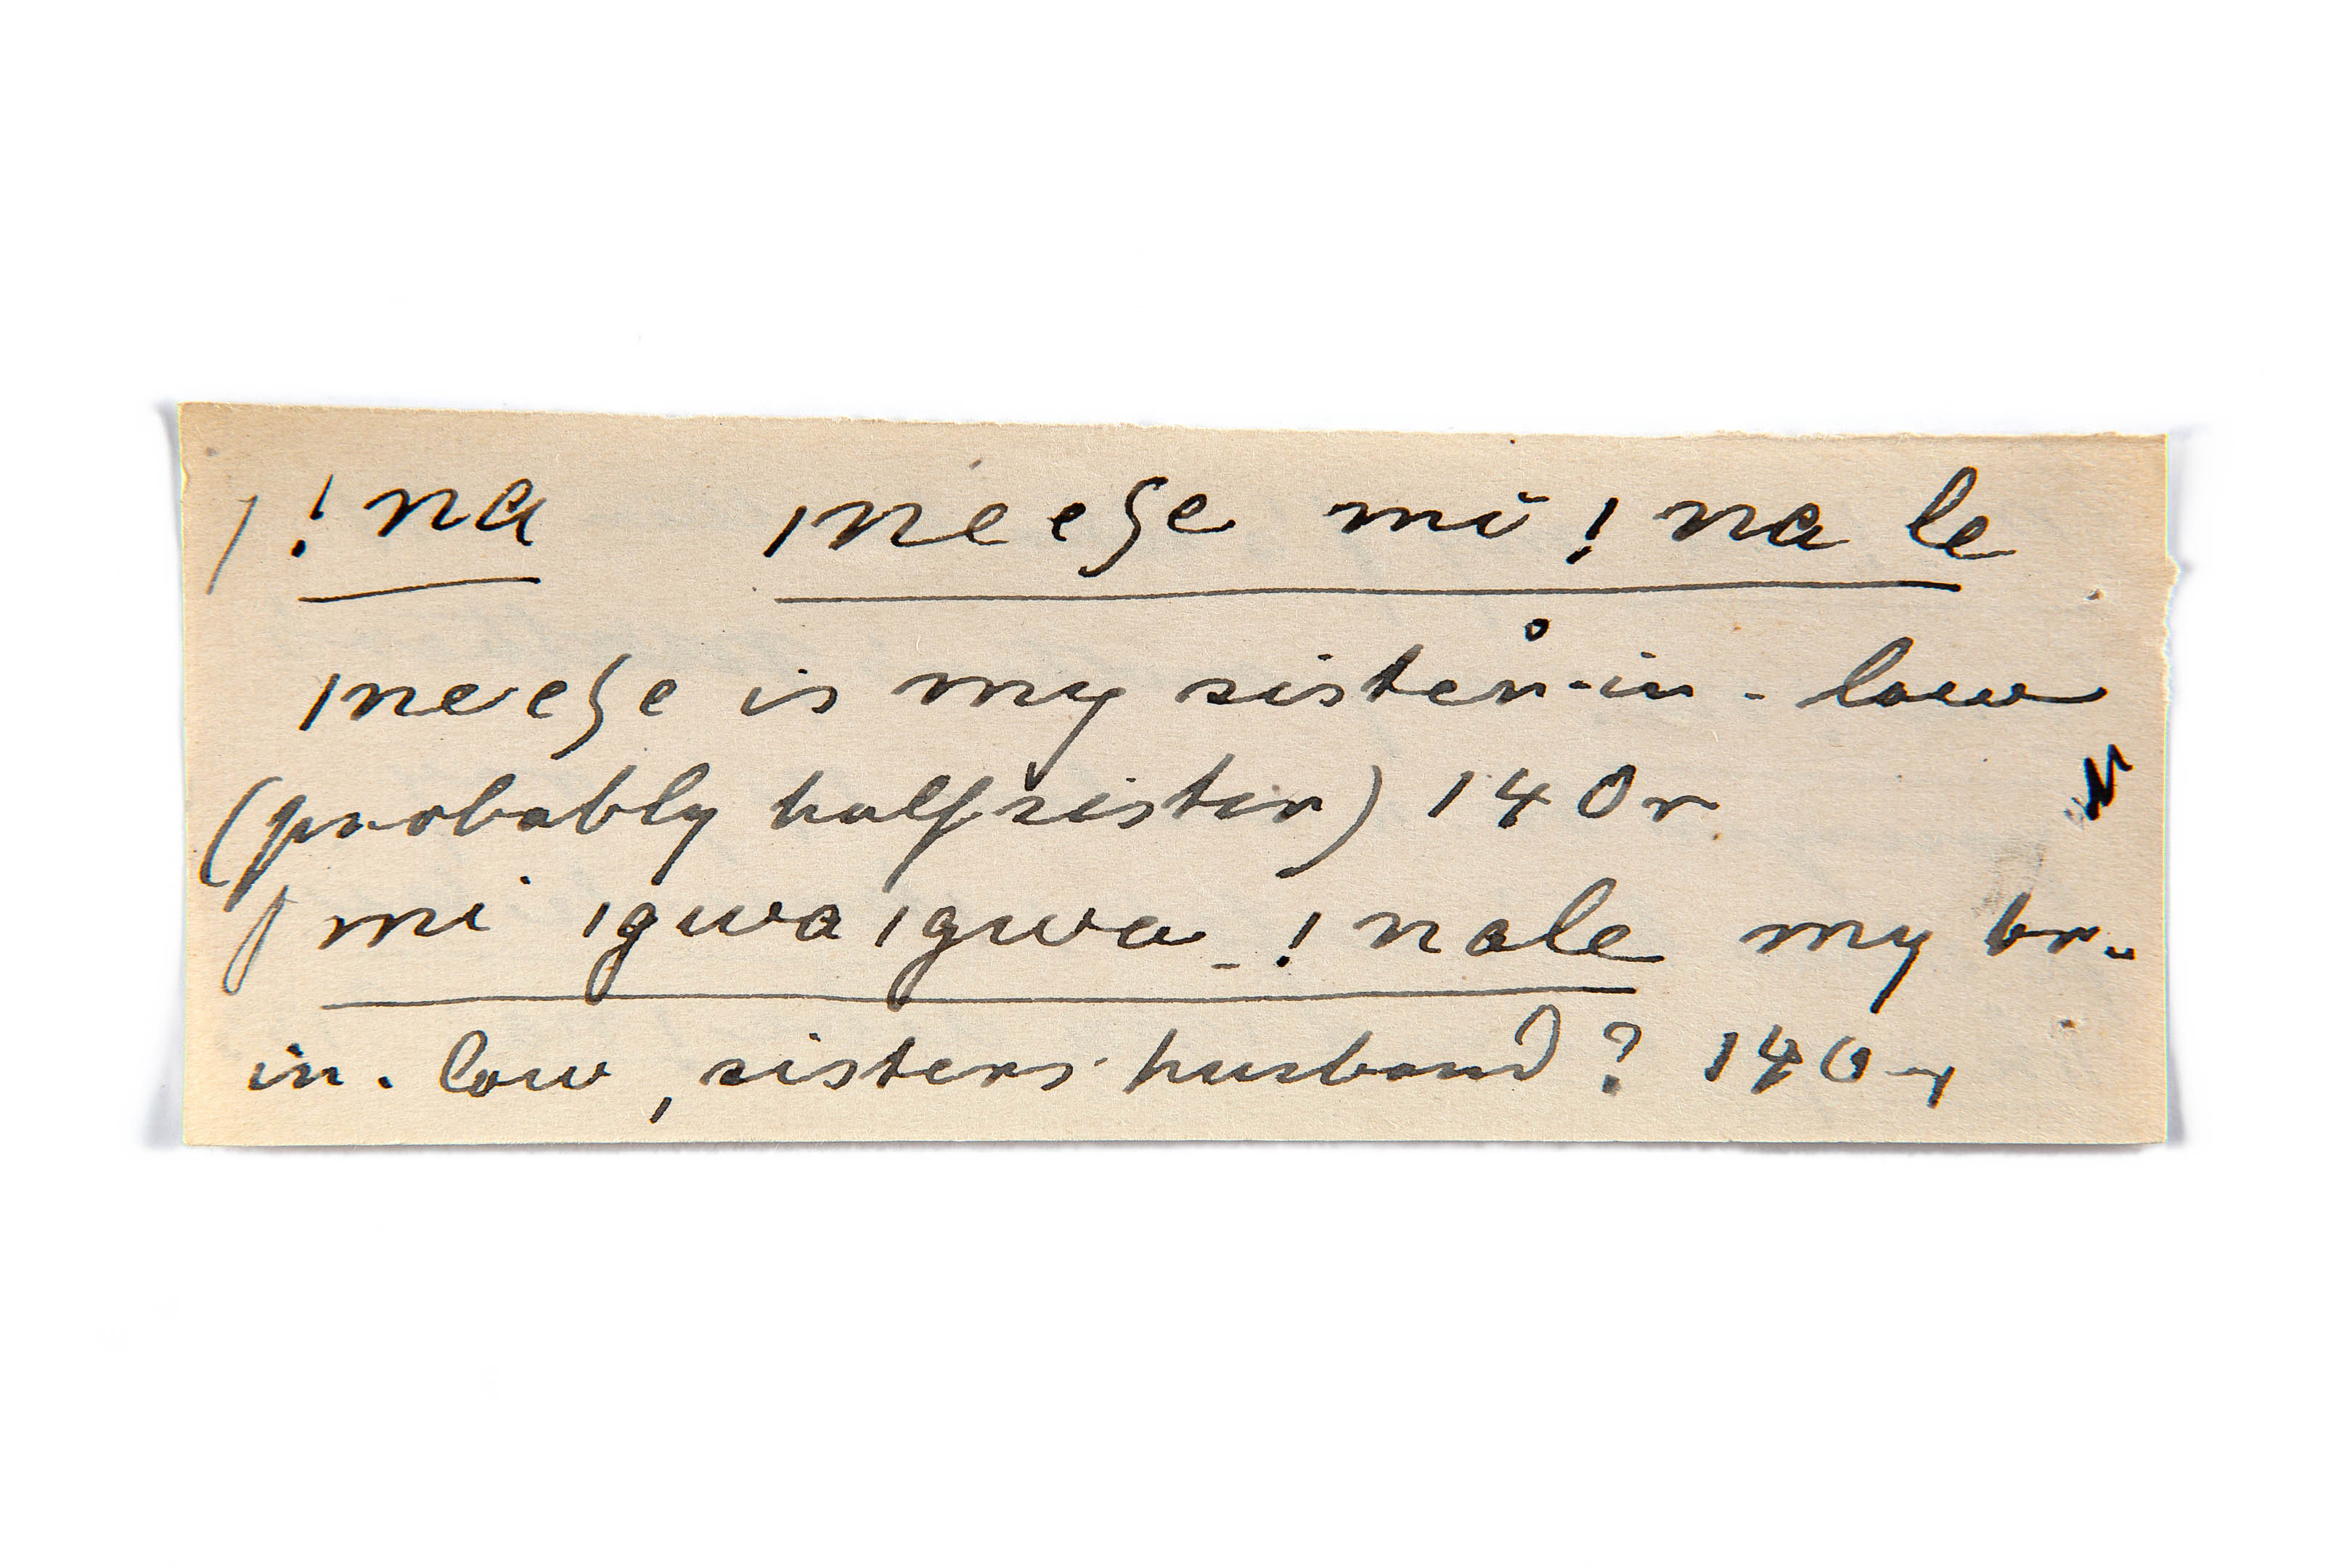 / !na ǀneeʒe mi !na le
ǀneeʒe is my sister-in-law
(probably halfsister) 140r
mi ǀgwaǀgwa-!nale my br.-
in-law, sisters husband? 140r